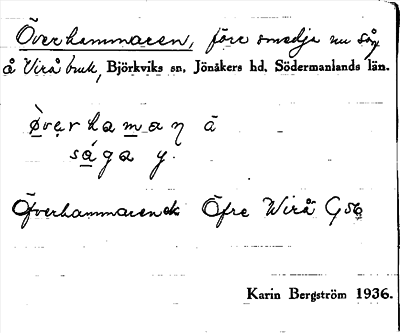 Överhammaren, före smedja nu såg
å Virå bruk, Björkviks sn, Jönåkers hd, Södermanlands län.
øvərhaman ä
såga y.
Öfverhammaren Öfre Wirå G 56
Karin Bergström 1936.